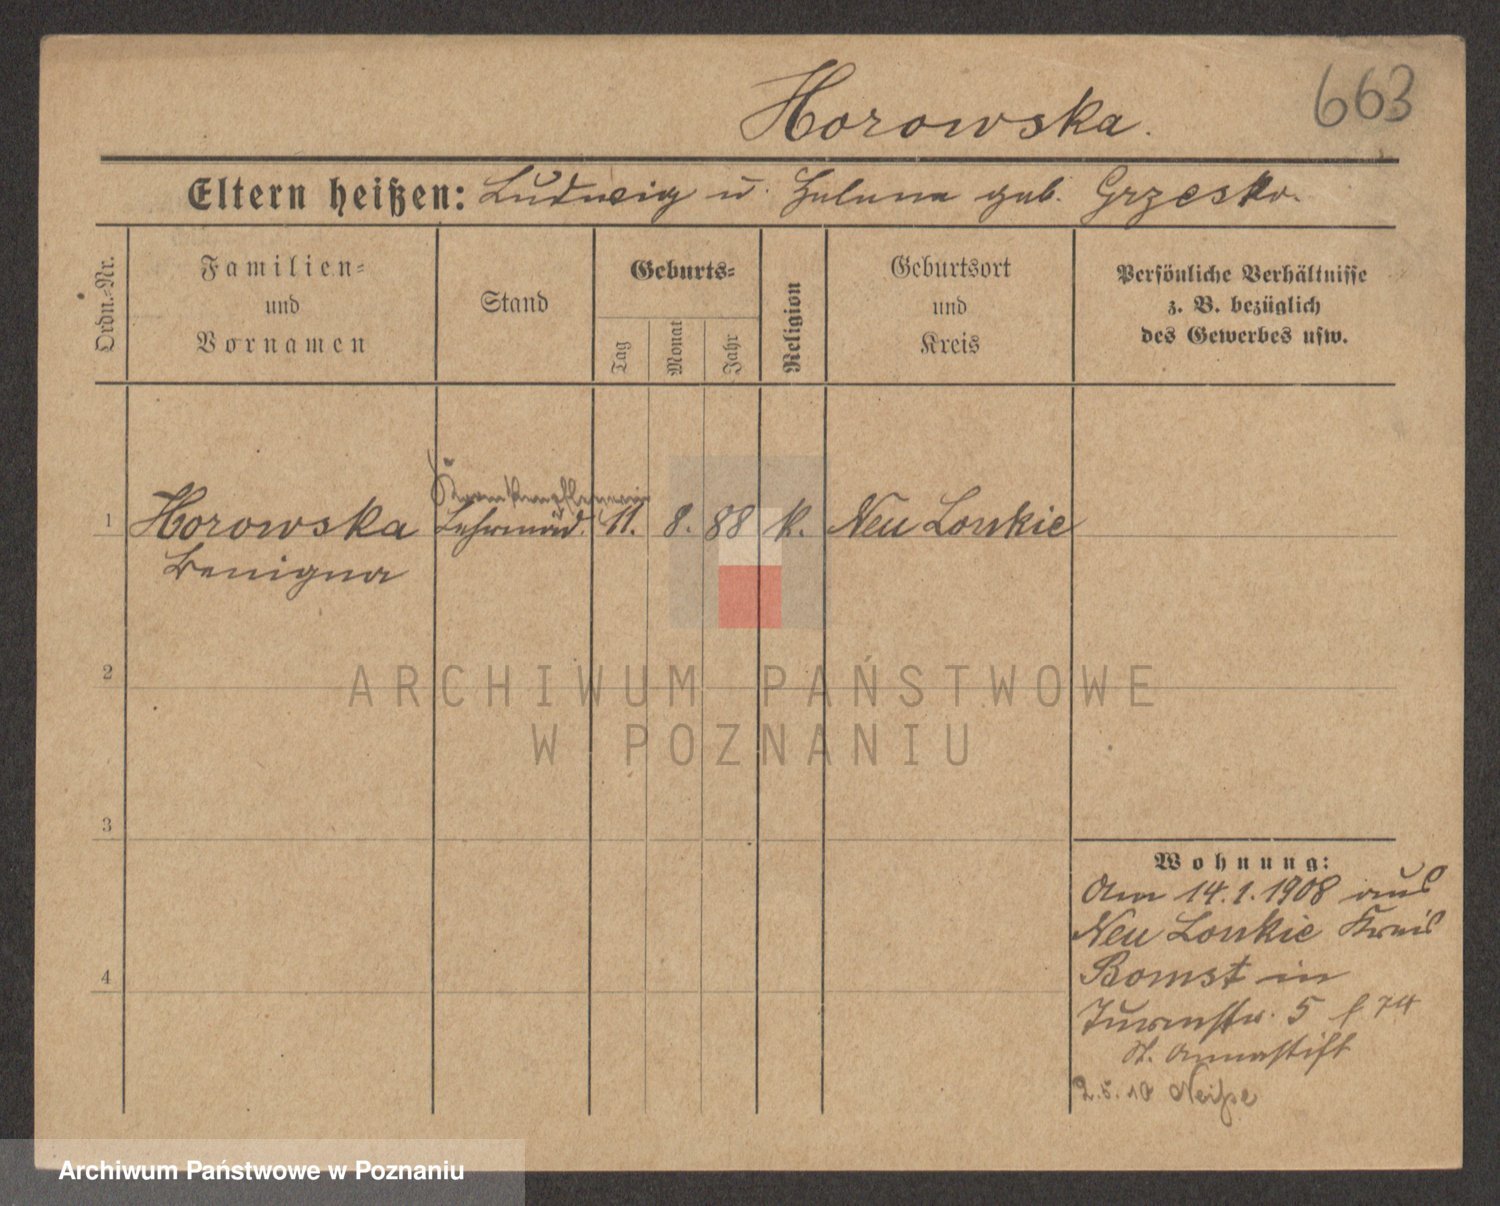 Horowska.
663
Eltern heißen: Ludwig u. Helena geb. Grzesko.
Ordn.-Nr.
Familien-
und
Vornamen
Stand
Geburts-
Tag
Monat
Jahr
Religion
Geburtsort
und
Kreis
Persönliche Verhältnisse
z. B. bezüglich
des Gewerbes usw.
Krankenpflegerin
1 Horowska Lehrmäd. 11. 8. 88 k. Neu Lonkie
Benigna
2
3
4
ARCHIWUM PAŃSTWOWE
W POZNANIU
Wohnung:
Am 14.1.1908 aus
Neu Lonkie Kreis
Bomst in
Turmstr. 5 f 74
St. Annastift
2.5.10 Neiße
Archiwum Państwowe w Poznaniu